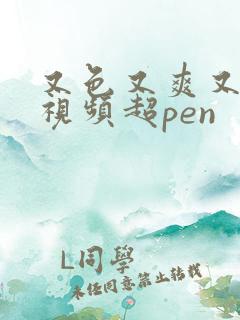 又色又爽又
視頻超pen
L同學
未经同意禁止转载